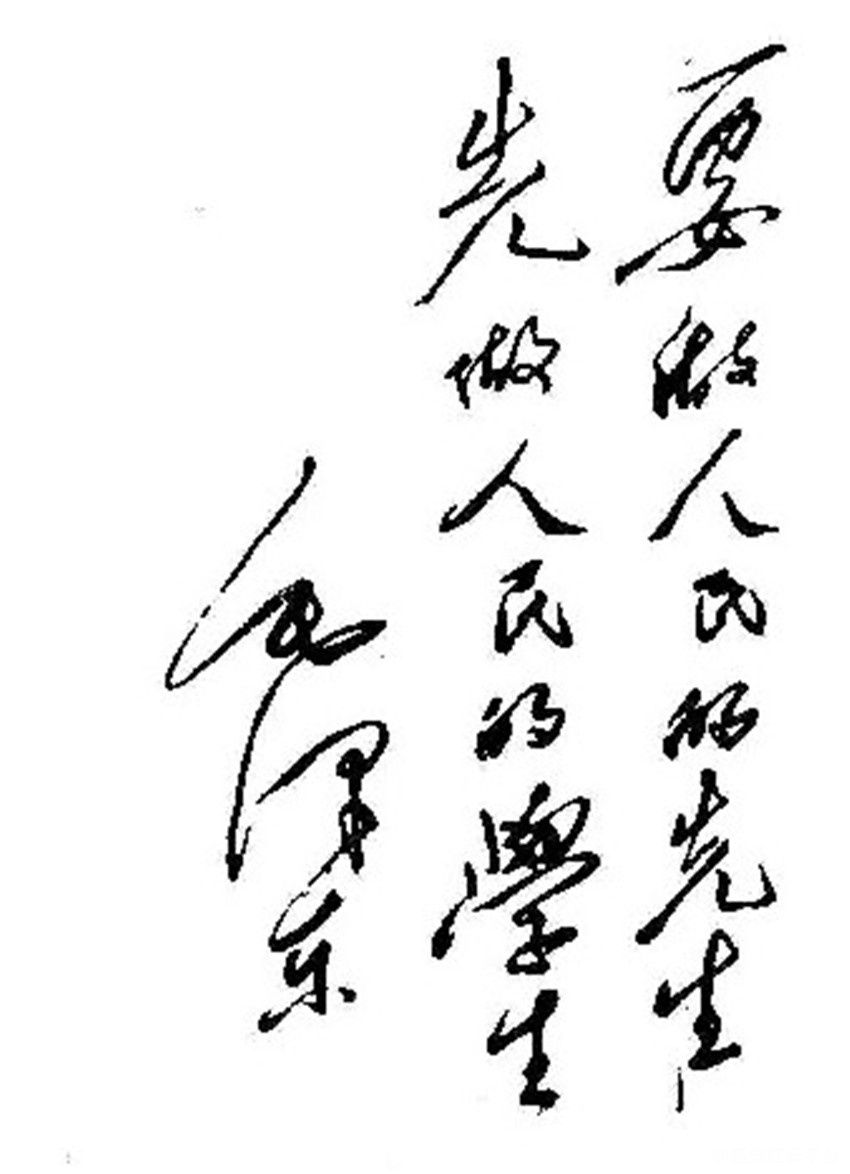 要做人民的先生，
先做人民的學生
毛泽东